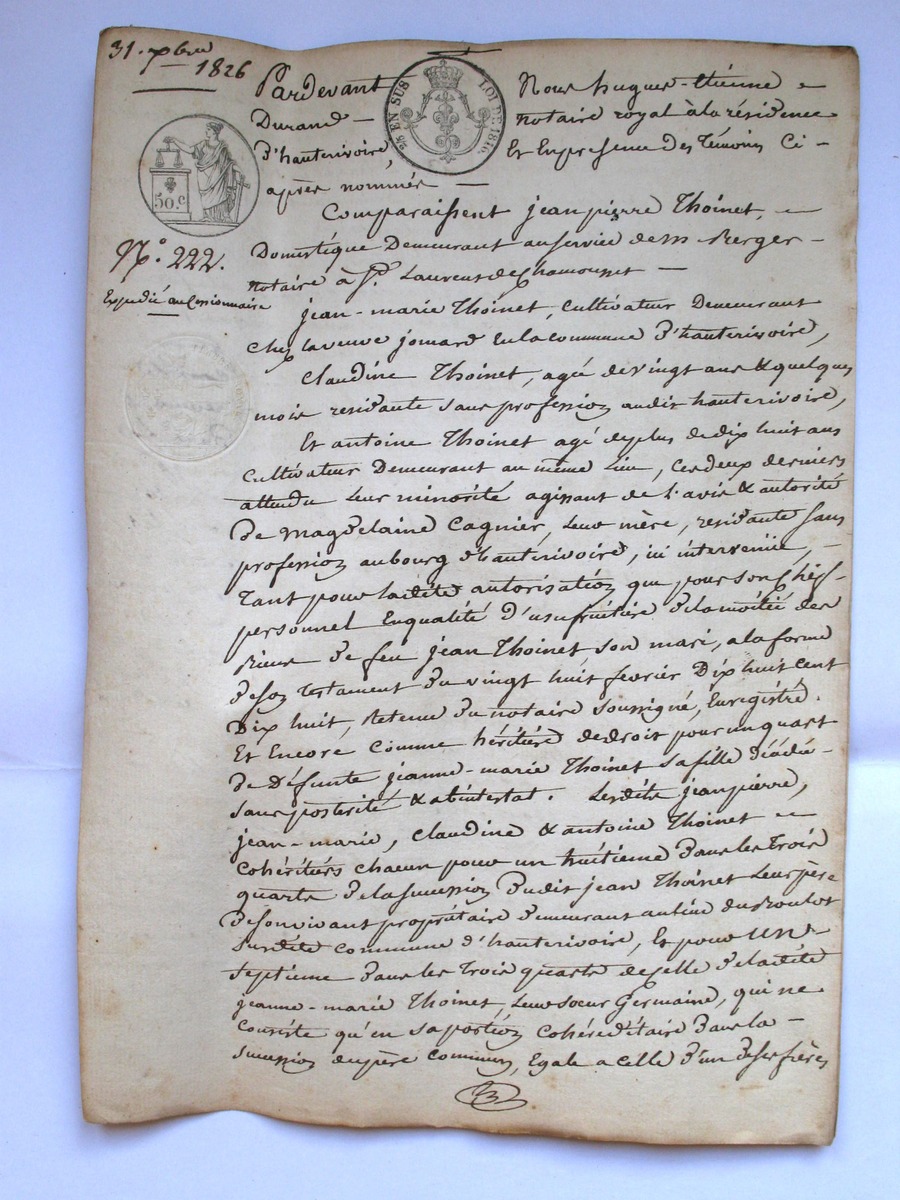 31. Xbre
1826
EN SUS LOI DE 1816.
50.C
N.° 222.
Expedié au Cessionnaire
Pardevant Nous hugues-Etienne
Durand – notaire royal à la résidence
d'hauterivoire, Et En presence des Témoins Ci-
après nommés –
Comparaissent jean pierre Thoinet, –
Domestique Demeurant au service de m Berger –
notaire à St. Laurent de Chamousset –
jean-marie Thoinet, cultivateur Demeurant
chez la veuve jomard En la commune d'hauterivoire,
Claudine Thoinet, agée de vingt ans & quelques
mois residante sans profession audit hauterivoire,
Et antoine Thoinet agé de plus de dix huit ans
Cultivateur Demeurant au même Lieu, Ces deux derniers
attendu Leur minorité agissant de L'avis & autorité
de magdelaine Cagnier, Leur mère, residante sans
profession au bourg d'hauterivoire, ici intervenüe, –
Tant pour ladite autorisation que pour son Chef
personnel En qualité d'usufruitière de la moitié des
Biens de feu jean Thoinet son mari, a la forme
de son Testament du vingt huit fevrier Dix huit cent
Dix huit, Retenu du notaire soussigné, Enregistré.
Et Encore comme héritière de droit pour un quart
de Défunte jeanne-marie Thoinet sa fille Décédée
sans posterité & abintestat. Lesdits jean pierre,
jean-marie, Claudine & antoine Thoinet –
Cohéritiers chacun pour un huitième dans les Trois
quarts de la succession dudit jean Thoinet Leur père
de son vivant propriétaire demeurant au lieu du
susdite Commune d'hauterivoire, Et pour un
septième dans les Trois quarts de celle de ladite
jeanne-marie Thoinet, Leur soeur Germaine, qui ne
Consiste qu'en sa portion Cohéréditaire dans la –
succession du père Commun, Egale a celle d'un de ses frères